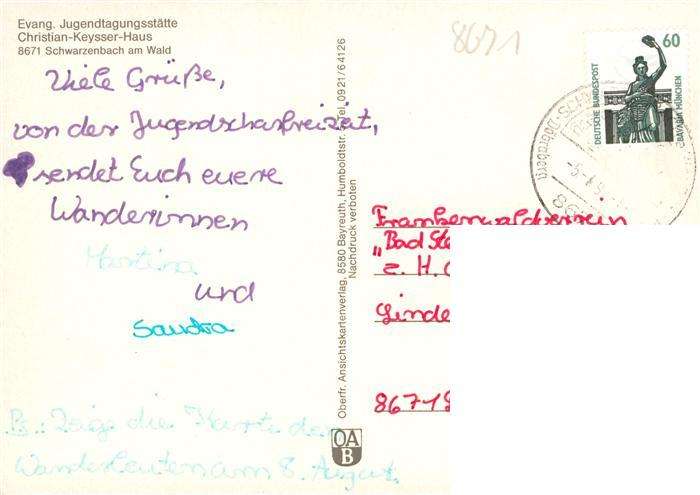 Evang. Jugendtagungsstätte
Christian-Keysser-Haus
8671 Schwarzenbach am Wald
Viele Grüße,
von der Jugendscharfreizeit,
sendet Euch euere
Wanderinnen
Martina
und
Sandra
Ps.: Zeige die Karte den
Wandersleuten am 8. August.
Oberfr. Ansichtskartenverlag, 8580 Bayreuth, Humboldtstr. Tel. 0921/64126
Nachdruck verboten
OA
B
8671
60
DEUTSCHE BUNDESPOST
BAVARIA MÜNCHEN
Frankenwaldverein
„Bad Ste
z. H.
Linde
8671